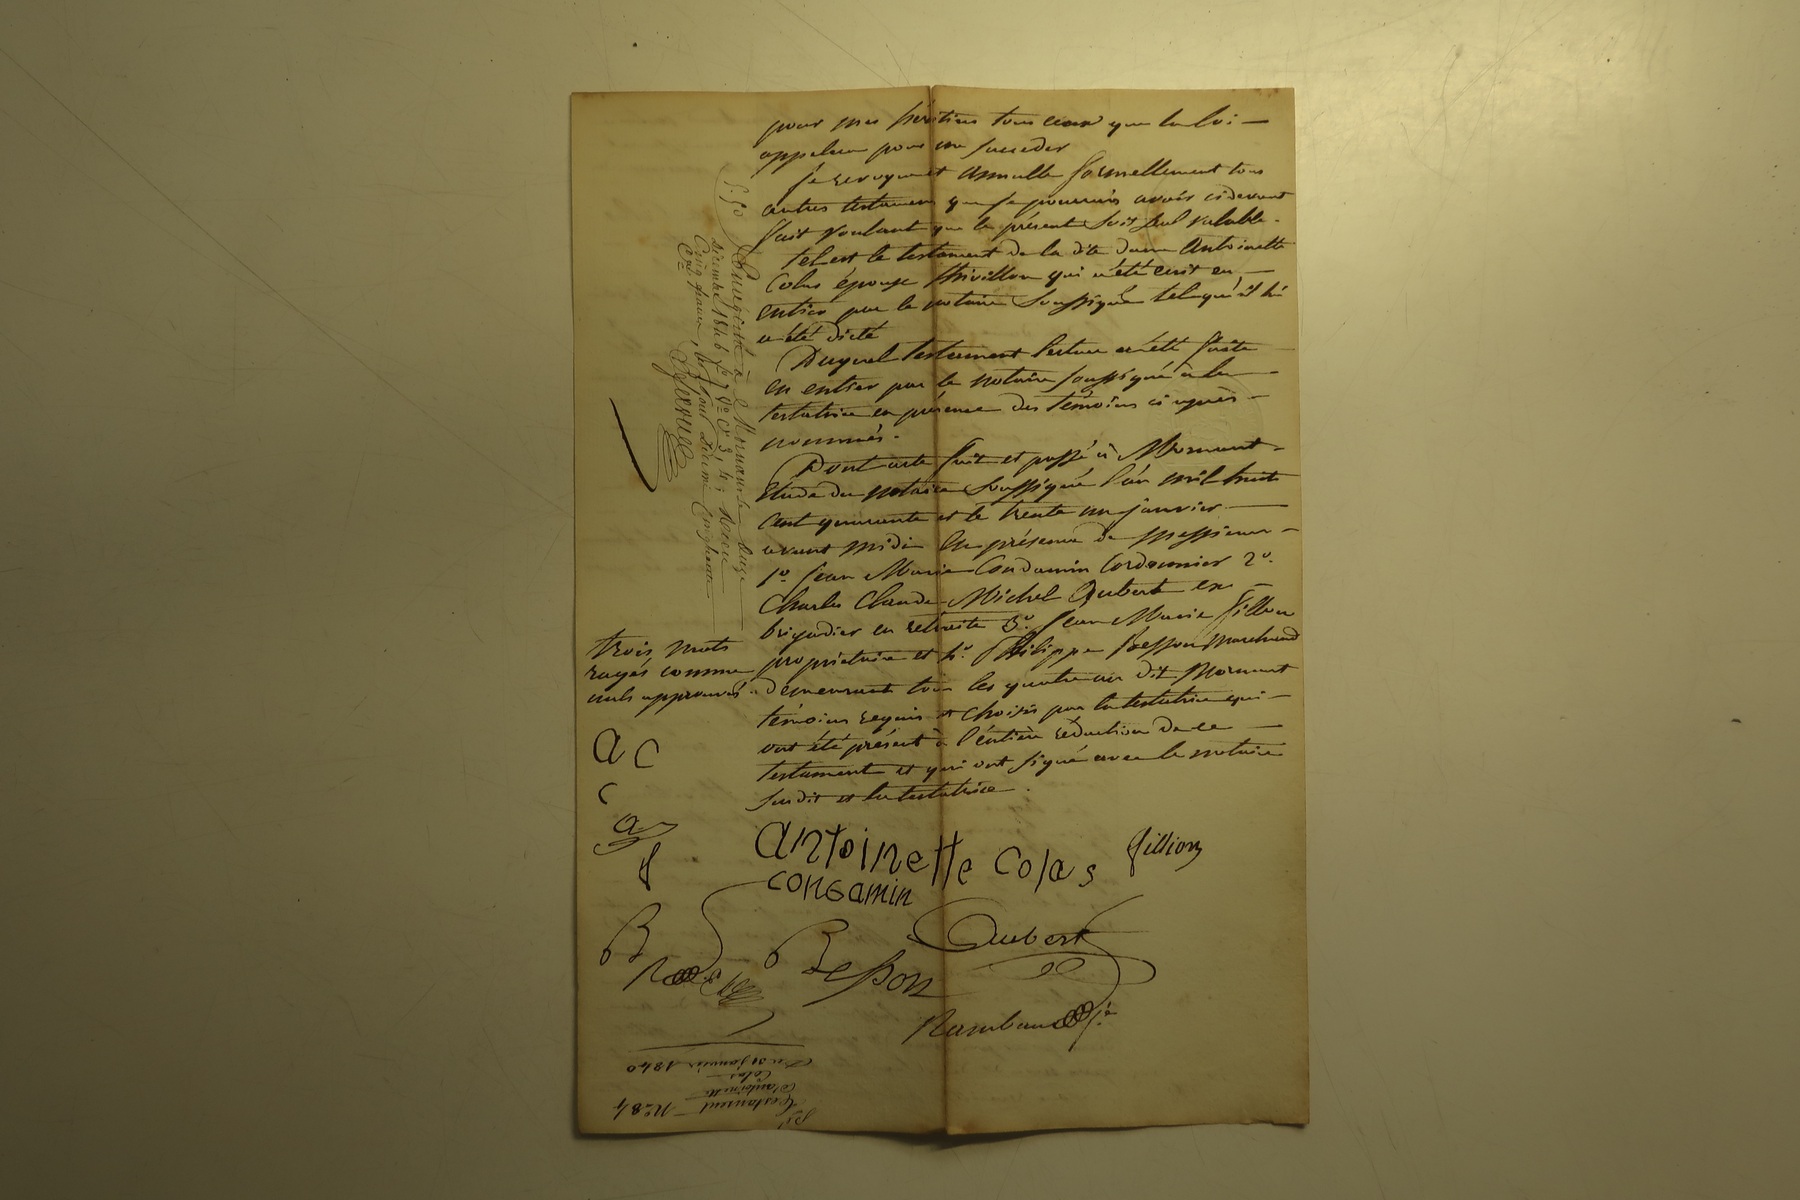 pour mes héritiers tous ceux que la loi
appelera pour me succeder
Je revoque et annulle formellement tous
autres testamens que je pourrais avoir cidevant
fait voulant que le présent soit seul valable.
tel est le testament de la dite dame Antoinette
Colas épouse Thivillon qui a été écrit en
entier par le notaire soussigné tel qu'il lui
a été dicté
Duquel testament lecture a été faite
en entier par le notaire soussigné à la
testatrice en présence des témoins ci après
nommés.
Dont acte fait et passé à Mornant
Etude du notaire soussigné l'an mil huit
cent quarante et le trente un janvier
avant midi en présence de messieurs
1o. Jean Marie Condamin Cordonnier 2o.
Charles Claude Michel Aubert ex
brigadier en retraite 3o. Jean Marie Gillion
propriétaire et 4o. Philippe Besson marchand
demeurant tous les quatre au dit Mornant
témoins requis et choisis par la testatrice qui
ont été présent à l'entière rédaction de ce
testament et qui ont signé avec le notaire
susdit et la testatrice.
trois mots
rayés comme
nuls approuvés.
a c
c
a
g
B
Antoinette Colas
Gillion
condamin
Aubert
Besson
Rambaud
Enregistré à Mornant le onze
décembre 1846 fo 7 Vo C 3, 4; Reçu
Cinq francs, dixième Cinquante
Ces
No 84
Testament
d'antoinette
Colas
Du 31 janvier 1840